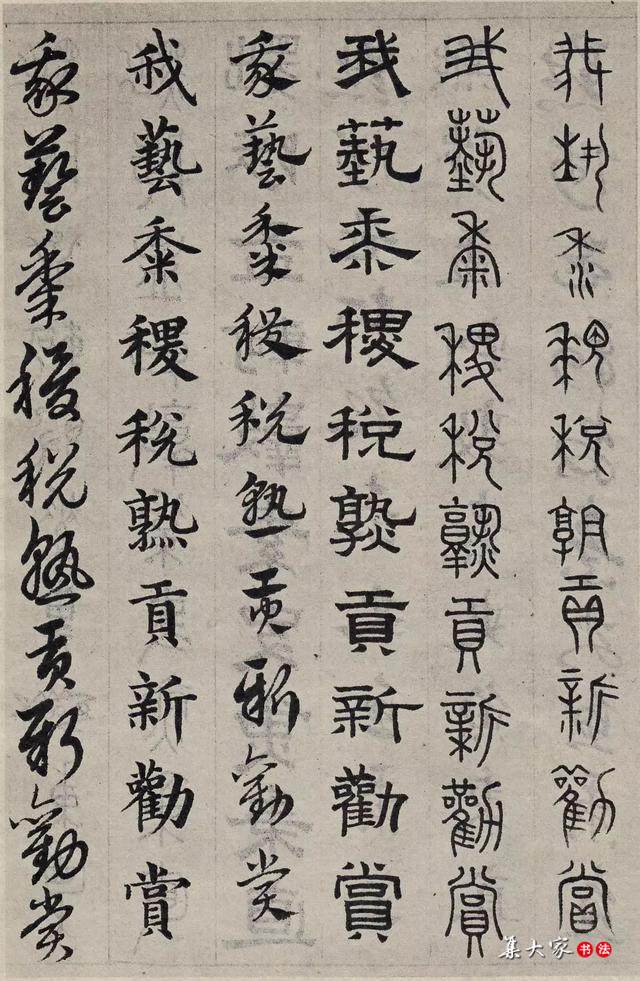 我埶黍稷稅孰貢新勸賞
我藝黍稷稅孰貢新勸賞
我藝黍稷稅熟貢新勸賞
我藝黍稷稅熟貢新勸賞
我藝黍稷稅熟貢新勸賞
我藝黍稷稅熟貢新勸賞
集大家书法